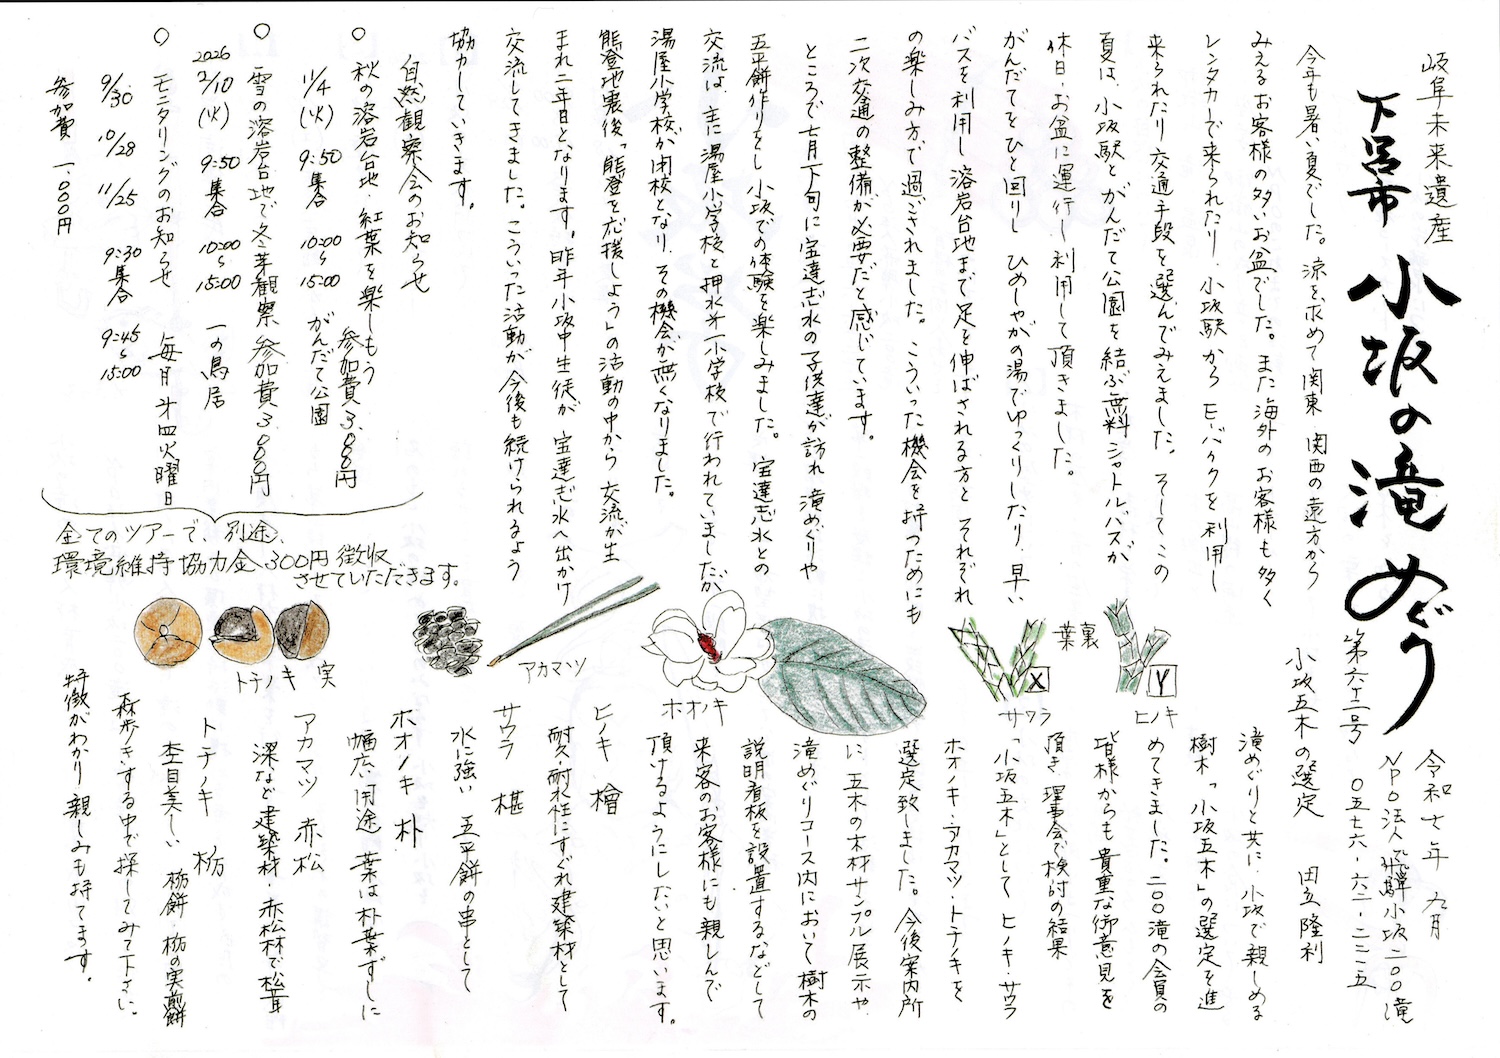 岐阜未来遺産
下呂市 小坂の滝めぐり
第六十二号
令和七年 九月
NPO法人飛騨小坂二〇〇滝
〇五七六-六二-二二一五
今年も暑い夏でした。涼を求めて関東・関西の遠方から
みえるお客様の多いお盆でした。また海外のお客様も多く
レンタカーで来られたり、小坂駅からE-バイクを利用し
来られたり交通手段を選んでみえました。そしてこの
夏は、小坂駅とがんだて公園を結ぶ無料シャトルバスが
休日・お盆に運行し利用して頂きました。
がんだてをひと回りし ひめしゃがの湯でゆっくりしたり、早い
バスを利用し溶岩台地まで足を伸ばされる方と それぞれ
の楽しみ方で過ごされました。こういった機会を持つためにも
二次交通の整備が必要だと感じています。
ところで七月下旬に宝達志水の子供達が訪れ 滝めぐりや
五平餅作りをし 小坂での体験を楽しみました。宝達志水との
交流は、主に湯屋小学校と押水第一小学校で行われていましたが
湯屋小学校が閉校となり、その機会が無くなりました。
能登地震後「能登を応援しよう」の活動の中から 交流が生
まれ二年目となります。昨年小坂中生徒が 宝達志水へ出かけ
交流してきました。こういった活動が今後も続けられるよう
協力していきます。
自然観察会のお知らせ
○ 秋の溶岩台地・紅葉を楽しもう 参加費 3,000円
11/4(火) 9:50集合 10:00~15:00 がんだて公園
○ 雪の溶岩台地で冬芽観察 参加費 3,000円
2026 2/10(火) 9:50集合 10:00~15:00 一の鳥居
○ モニタリングのお知らせ 毎月第四火曜日
9/30 10/28 11/25 9:30集合 9:45~15:00
参加費 一,000円
全てのツアーで、別途、
環境維持協力金、300円徴収
させていただきます。
トチノキ 実
アカマツ
ホオノキ
葉裏
X
サワラ
Y
ヒノキ
小坂五木の選定 田立隆利
滝めぐりと共に、小坂で親しめる
樹木、「小坂五木」の選定を進
めてきました。二〇〇滝の会員の
皆様からも貴重な御意見を
頂き、理事会で検討の結果
「小坂五木」として ヒノキ・サワラ
ホオノキ・アカマツ・トチノキを
選定致しました。今後案内所
に、五木の木材サンプル展示や、
滝めぐりコース内において樹木の
説明看板を設置するなどして
来客のお客様にも親しんで
頂けるようにしたいと思います。
ヒノキ 檜
耐久・耐水性にすぐれ建築材として
サワラ 椹
水に強い 五平餅の串として
ホオノキ 朴
幅広い用途 葉は朴葉ずしに
アカマツ 赤松
深など建築材・赤松林で松茸
トチノキ 栃
杢目美しい 栃餅・栃の実煎餅
森歩きする中で探してみて下さい。
特徴がわかり親しみも持てます。